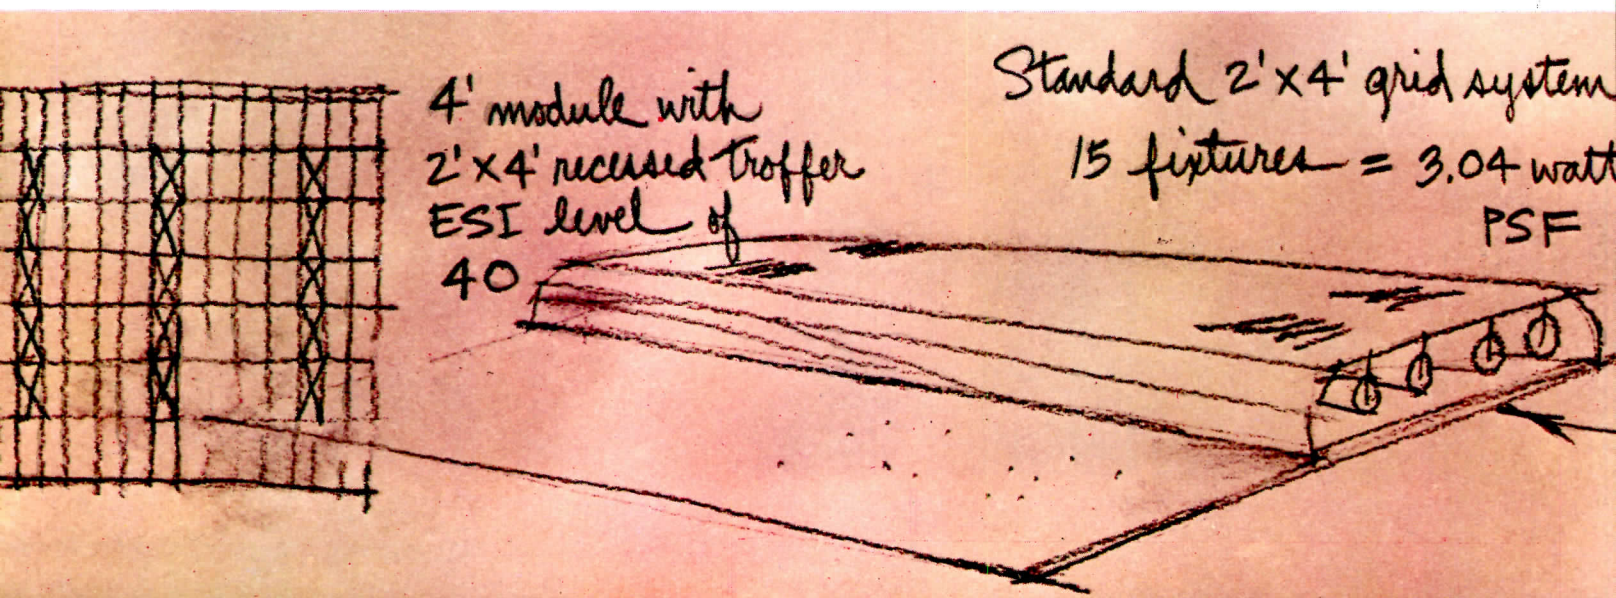 4' module with
2'x4' recessed troffer
ESI level of
40
Standard 2'x4' grid system
15 fixtures = 3.04 watt
PSF